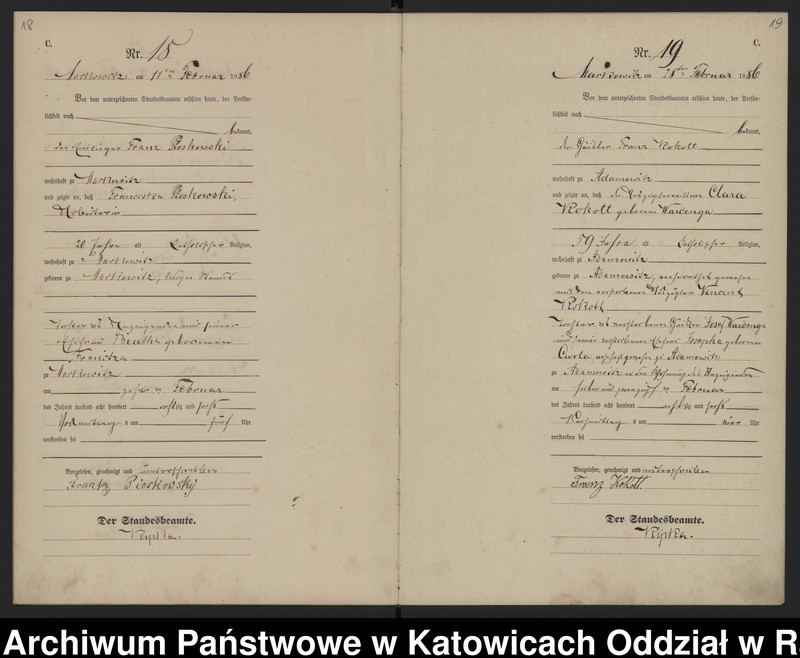 18
C.
Nr. 15
Markowitz am 11ten Februar 1886
Vor dem unterzeichneten Standesbeamten erschien heute, der Persön-
lichkeit nach
bekannt,
der Einlieger Franz Pioskowski
wohnhaft zu Markowitz
und zeigte an, daß Franciska Pioskowski,
Arbeiterin
20 Jahre alt Katholischer Religion,
wohnhaft zu Markowitz
geboren zu Markowitz, ledigen Standes
Tochter des Anzeigenden und seiner
Ehefrau Beatha geborenen
Franitza
zu Markowitz
am zehnten Februar
des Jahres tausend acht hundert achtzig und sechs
Vormittags um fünf Uhr
verstorben sei
Vorgelesen, genehmigt und unterschrieben
Frantz Pioskowsky
Der Standesbeamte.
19
C.
Nr. 19
Markowitz am Februar 1886
Vor dem unterzeichneten Standesbeamten erschien heute, der Persön-
lichkeit nach
bekannt,
der Häusler Franz Kokott
wohnhaft zu Adamowitz
und zeigte an, daß die Auszüglerwittwe Clara
Kokott geborene Waidenga
59 Jahre alt Katholischer Religion,
wohnhaft zu Adamowitz
geboren zu Adamowitz, verheirathet gewesen
mit dem verstorbenen Auszügler Vincent
Kokott
Tochter des verstorbenen Häuslers Josef Waidenga
und seiner verstorbenen Ehefrau Josepha geborenen
Cwola, wohnhaft gewesen zu Adamowitz
zu Adamowitz in der Wohnung des Anzeigenden
am sieben und zwanzigsten Februar
des Jahres tausend acht hundert achtzig und sechs
Nachmittags um vier Uhr
verstorben sei
Vorgelesen, genehmigt und unterschrieben
Franz Kokott.
Der Standesbeamte.
Archiwum Państwowe w Katowicach Oddział w R